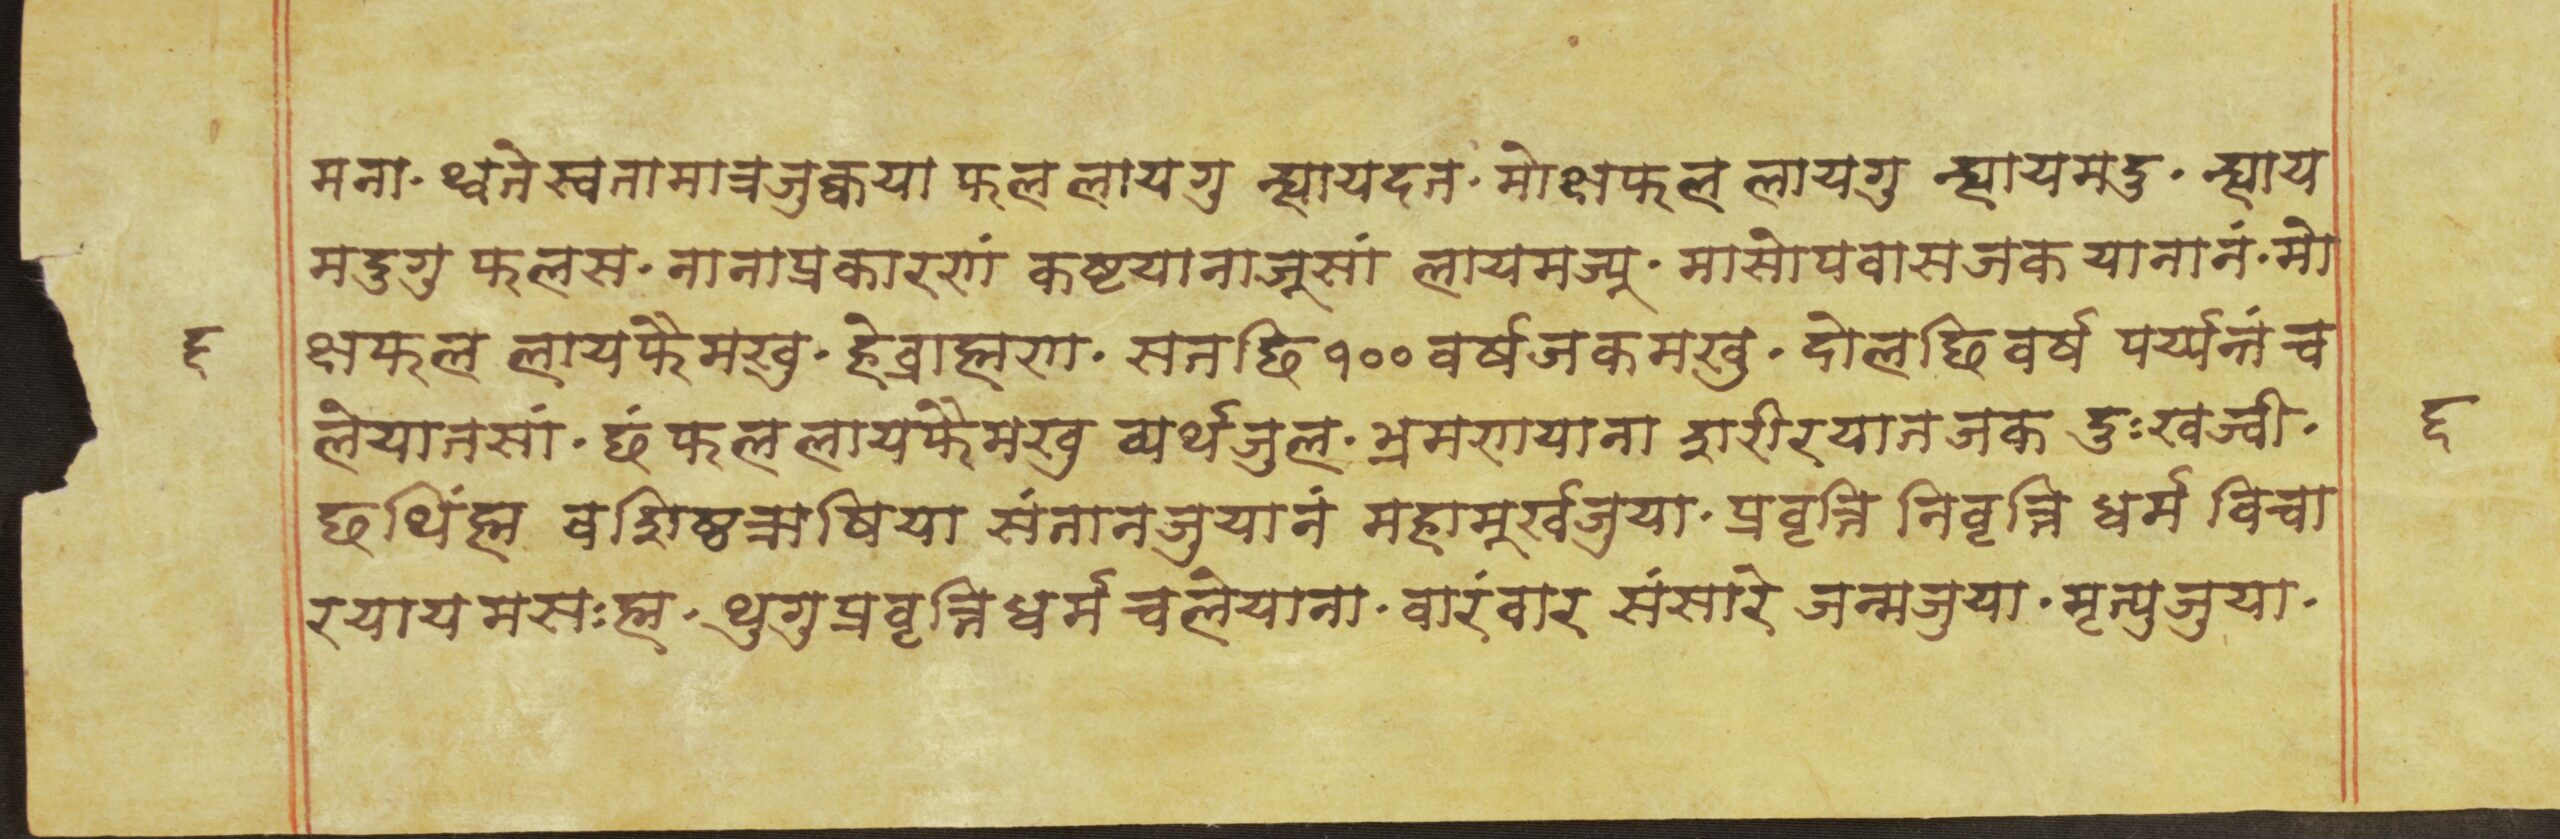 मना· थ्वतेस्वतामात्रजुक्वया फल लायगु न्ह्यायदत· मोक्षफल लायगु न्ह्यायमदु· न्ह्याय
मदुगु फलस· नानाप्रकारणं कष्टयानाजूसां लायमज्यू· मासोपवासजक यानानं· मो
क्षफल लायफैमखु· हेब्राह्मण· सतछि १०० वर्षजकमखु· दोलछि वर्ष पर्य्यन्तं च
लेयातसां· छं फल लायफैमखु व्यर्थजुल· भ्रमणयाना शरीरयातजक दुःखज्वी·
छथिंह्म वशिष्ठऋषिया संतानजुयानं महामूर्खजुया· प्रवृत्ति निवृत्ति धर्म विचा
रयायमसःह्म· थुगुप्रवृत्तिधर्म चलेयाना· वारंवार संसारे जन्मजुया· मृत्युजुया·